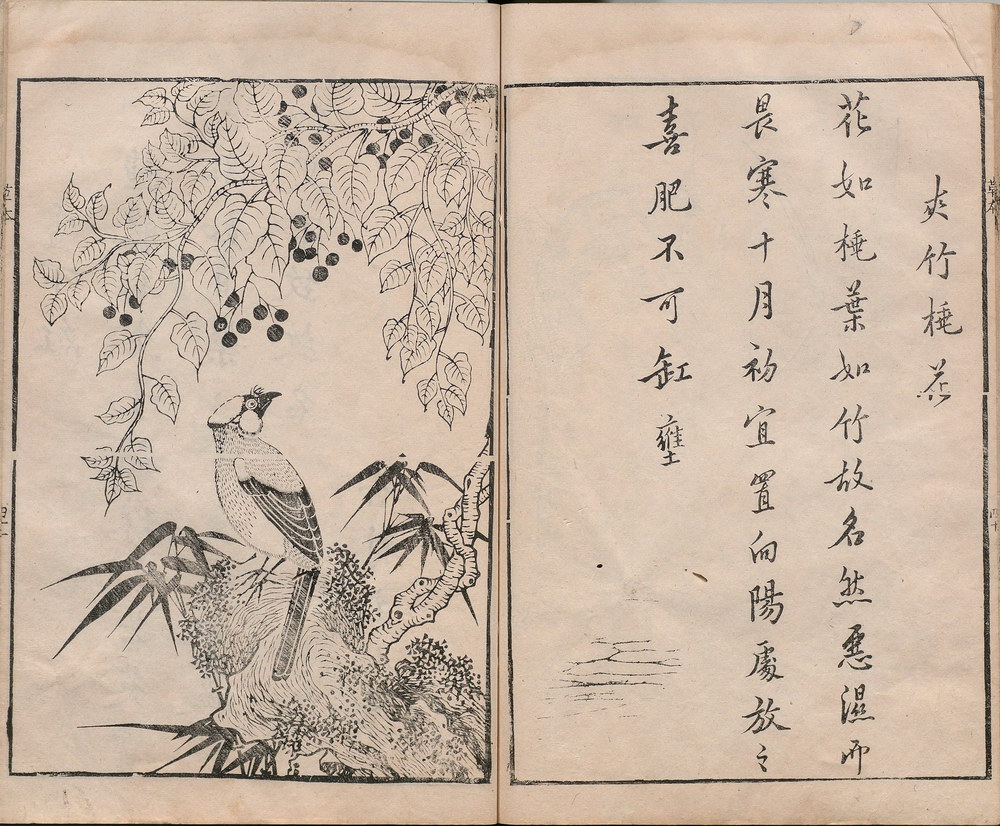 夾竹桃花
花如桃葉如竹故名然惡濕而
畏寒十月初宜置向陽處放之
喜肥不可缸壅
草本